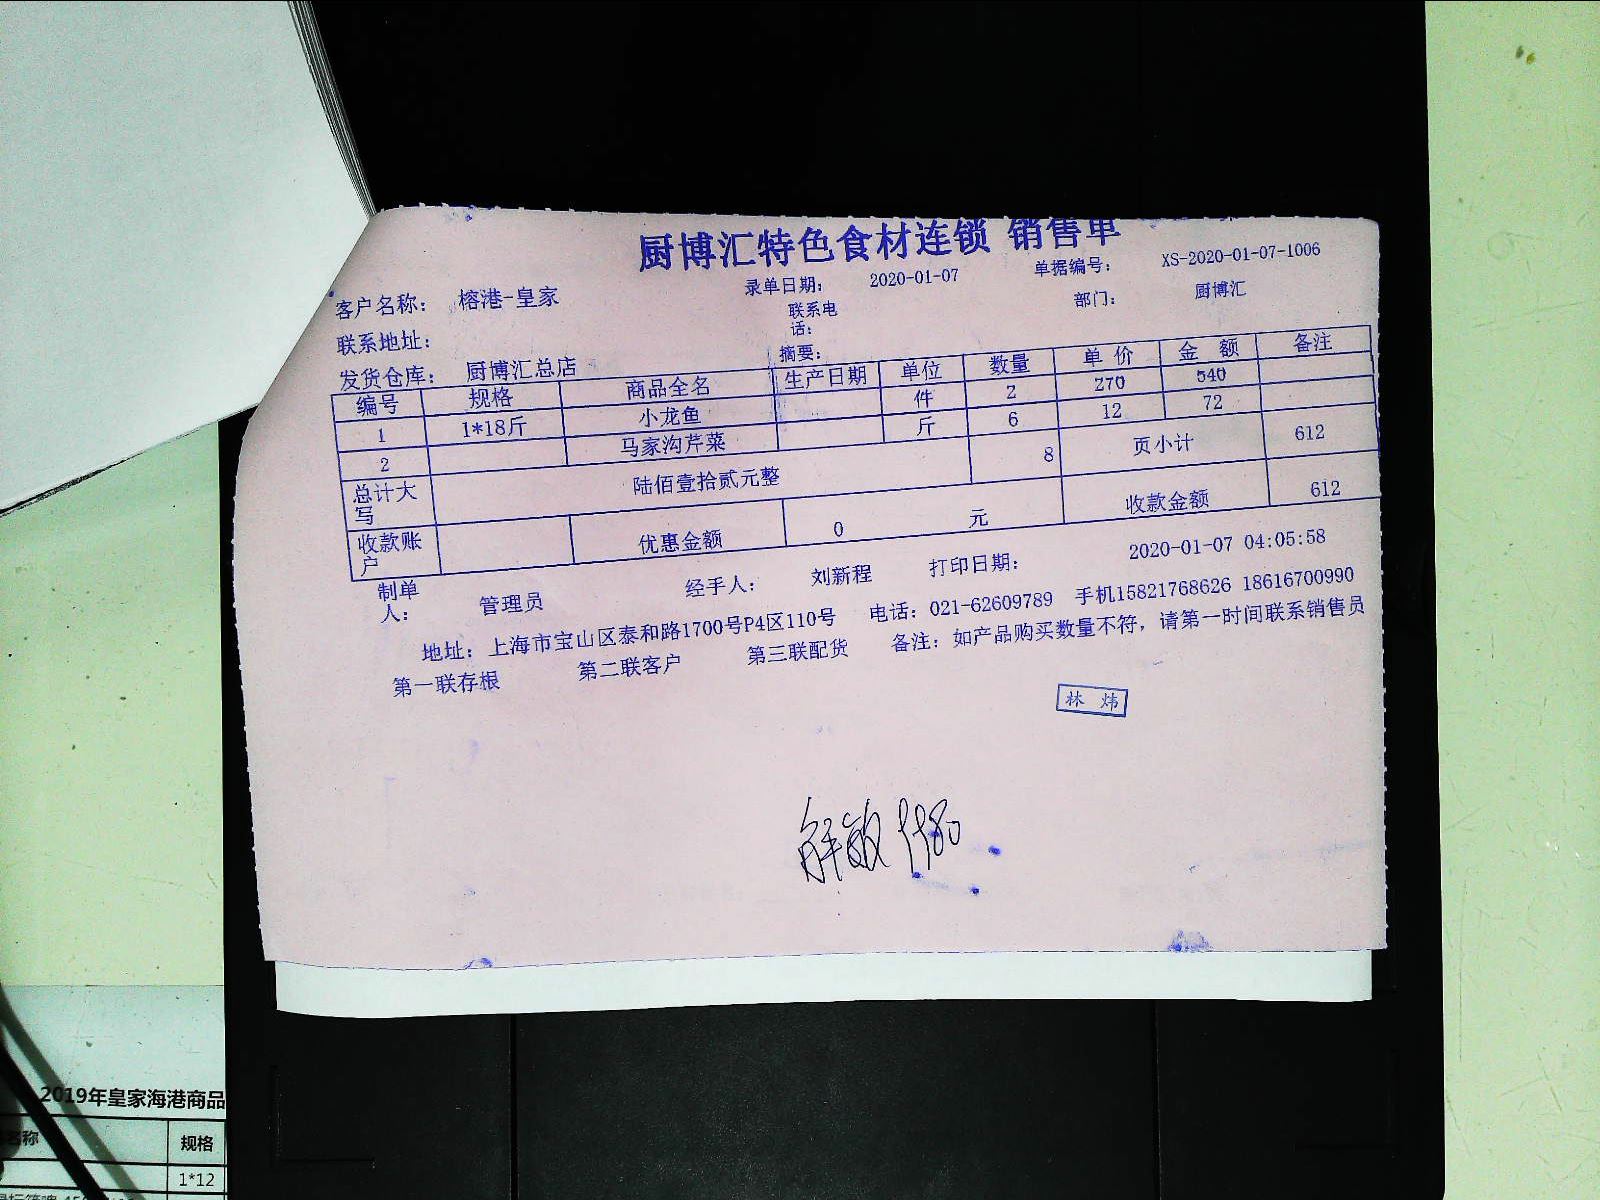 厨博汇特色食材连锁 销售单
客户名称： 榕港-皇家 录单日期： 2020-01-07 单据编号： XS-2020-01-07-1006
联系地址： 联系电话： 部门： 厨博汇
发货仓库： 厨博汇总店 摘要：
编号 规格 商品全名 生产日期 单位 数量 单 价 金 额 备注
1 1*18斤 小龙鱼 件 2 270 540
2 马家沟芹菜 斤 6 12 72
总计大写 陆佰壹拾贰元整 8 页小计 612
收款账户 优惠金额 0 元 收款金额 612
制单人： 管理员 经手人： 刘新程 打印日期： 2020-01-07 04:05:58
地址：上海市宝山区泰和路1700号P4区110号 电话：021-62609789 手机15821768626 18616700990
第一联存根 第二联客户 第三联配货 备注：如产品购买数量不符，请第一时间联系销售员
林 炜
2019年皇家海港商品
名称 规格
1*12